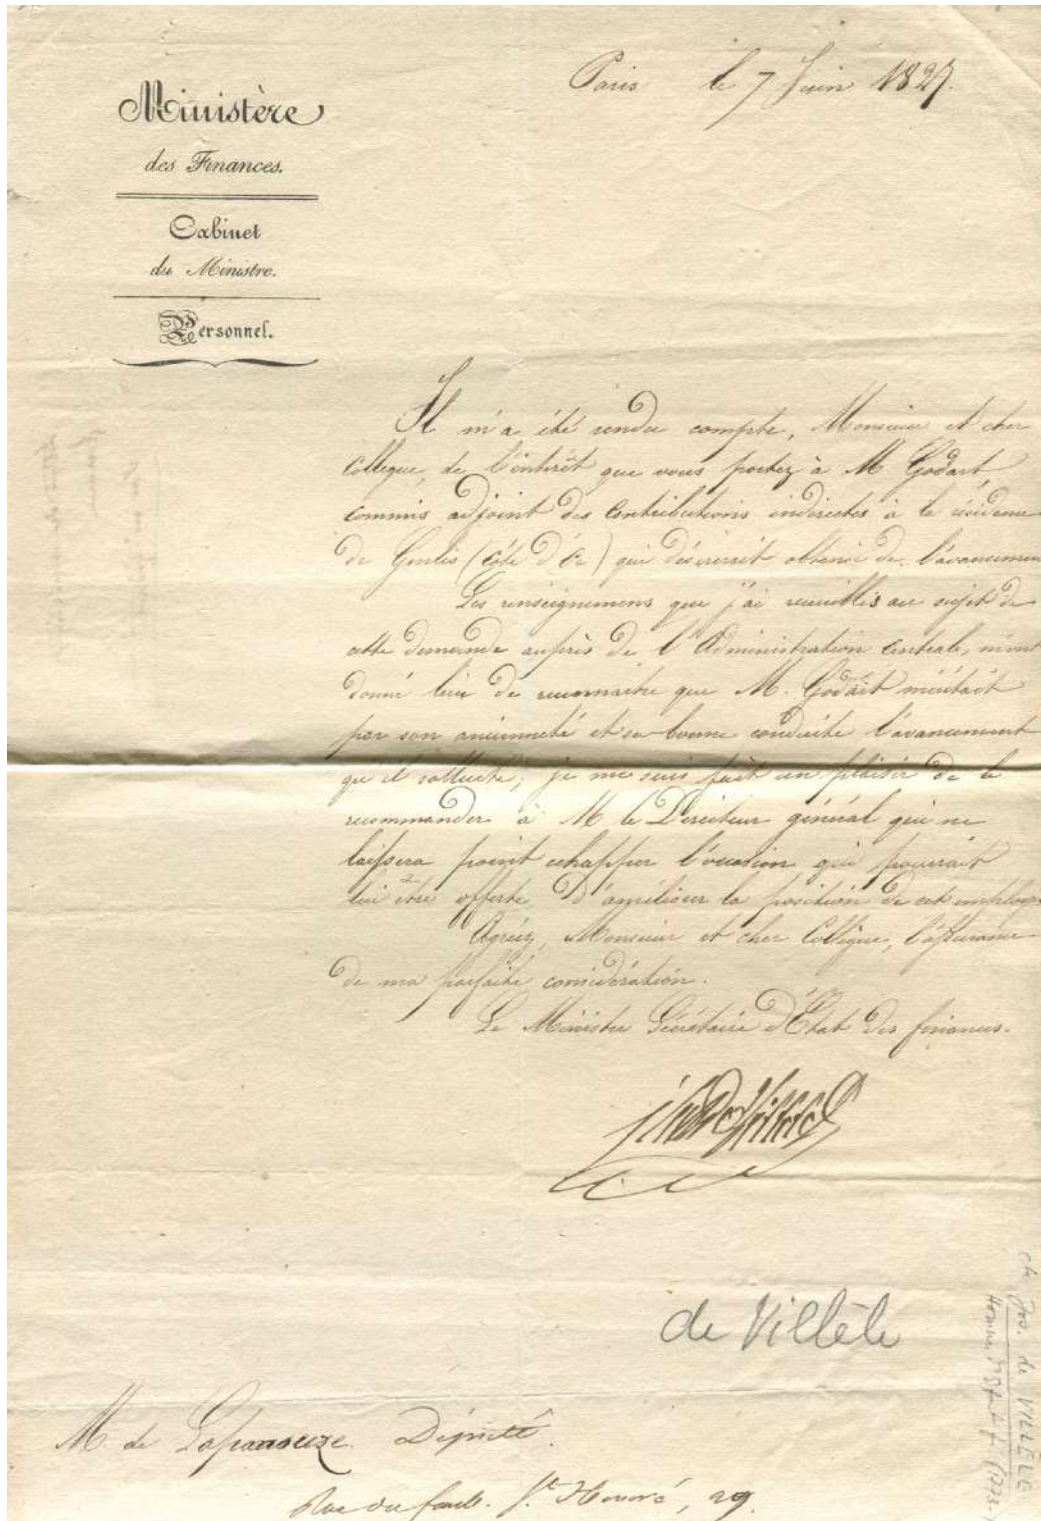 Paris le 7 Juin 1827.
Ministère
des Finances.
Cabinet
du Ministre.
Personnel.
Il m'a été rendu compte, Monsieur et cher
Collegue, de l'intérêt que vous portez à M Godart,
commis adjoint des Contributions indirectes à la résidence
de Genlis (Côte d'Or) qui désirerait obtenir de l'avancement
Les renseignemens que j'ai recueillis au sujet de
cette demande auprès de l'Administration Centrale, m'ont
donné lieu de reconnaitre que M. Godart méritait
par son ancienneté et sa bonne conduite l'avancement
qu'il sollicite; je me suis fait un plaisir de le
recommander à M le Directeur général qui ne
laissera point echapper l'occasion qui pourrait
lui être offerte d'améliorer la position de cet employé
Agréez, Monsieur et cher Collègue, l'assurance
de ma parfaite considération.
Le Ministre Secrétaire d'Etat des finances.
de Villèle
M. de Lapanouze Député.
Rue du faub. St. Honoré, 29.
Jos. de VILLÈLE